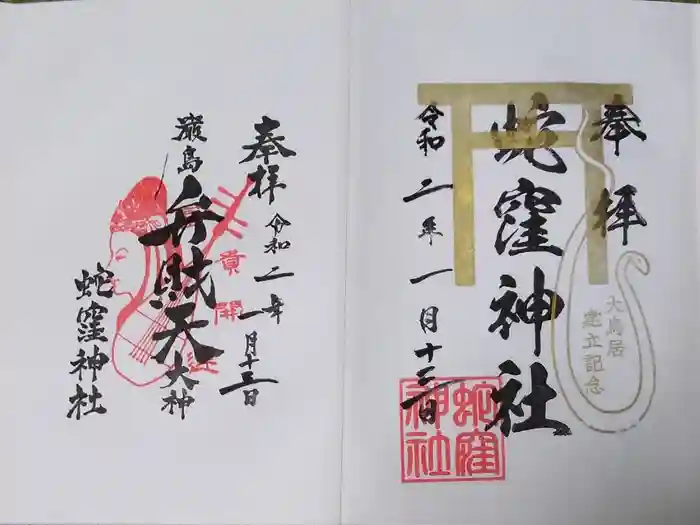 奉拝
大鳥居
建立記念
蛇窪神社
令和二年一月十三日
蛇窪
神社
奉拝
令和二年一月十三日
厳島
弁財天
大神
蛇窪神社
開